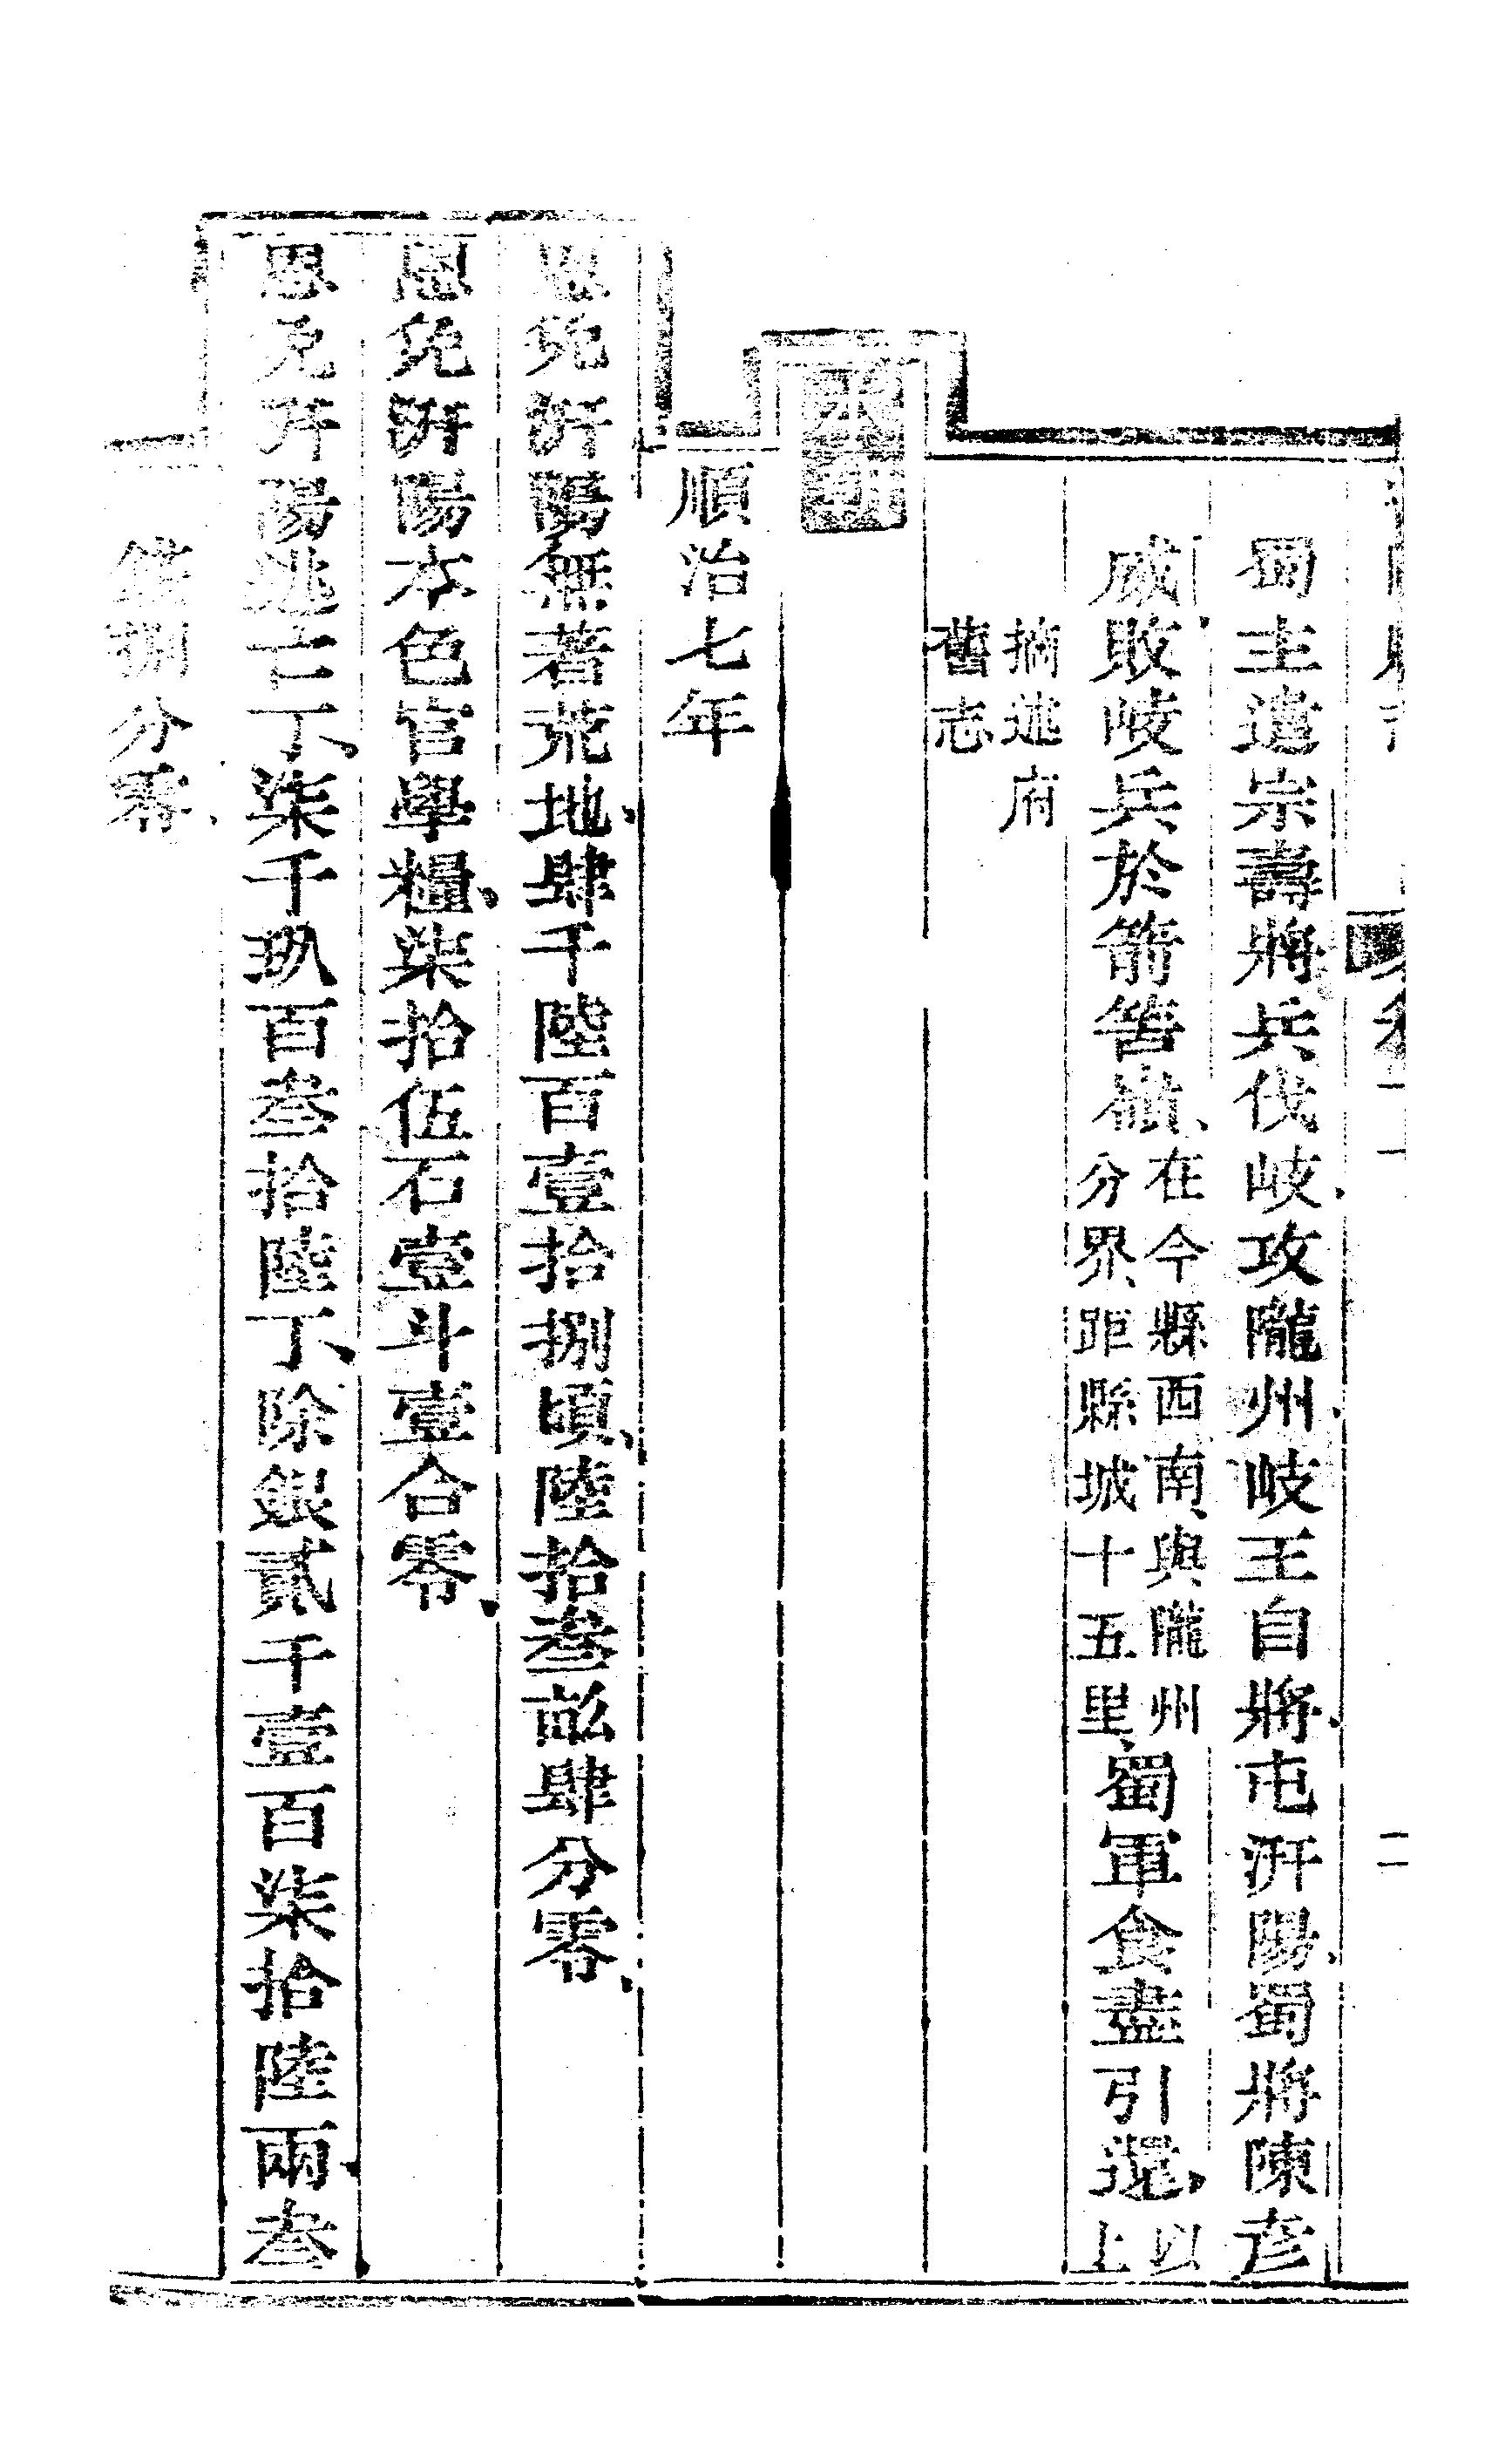 蜀主遣宗壽將兵伐岐攻隴州岐王自將屯汧陽蜀將陳彥
威敗岐兵於箭筈嶺在今縣西南與隴州分界距縣城十五里蜀軍食盡引還以上
摘述府舊志
本朝
順治七年
恩免汧陽無著荒地肆千陸百壹拾捌頃陸拾叁畝肆分零
恩免汧陽本色官學糧柒拾伍石壹斗壹合零
恩免汧陽逃亡丁柒千玖百叁拾陸丁除銀貳千壹百柒拾陸兩叁
錢捌分零